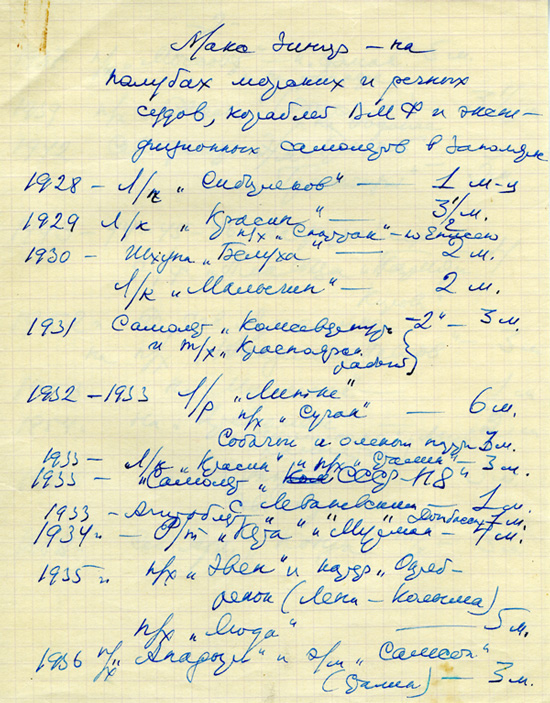 Макс Зингер – на
палубах морских и речных
судов, кораблей ВМФ и экспе-
диционных самолетов в Заполярье
1928 – Л/п „Сибиряков" — 1 м-ц
1929 Л/к „Красин" — 3 1/2 м.
п/х „Спартак" –
1930 – Шхуна „Белуха" — 2 м.
Л/к „Малыгин" — 2 м.
1931 Самолет „Комсеверпуть – 2" – 3 м.
и т/х „Красноярск
рабочий"
1932 – 1933 Л/р „Литке"
п/х „Сучан" — 6 м.
Собачьи и оленьи 3 м.
1933 – Л/к „Красин" и п/х „Сталин" – 3 м.
1933 – „Самолет „СССР – Н8"
1933 – С. Леваневским – 1 м.
1934 г. – Р/т „Кета" и „Мурман – м.
1935 г. п/х „Эвен" и катер „Ошеб-
(Лена – Колыма)
п/х — 5 м.
1936 п/х „Анадырь" и л/м „Самсон"
— 3 м.